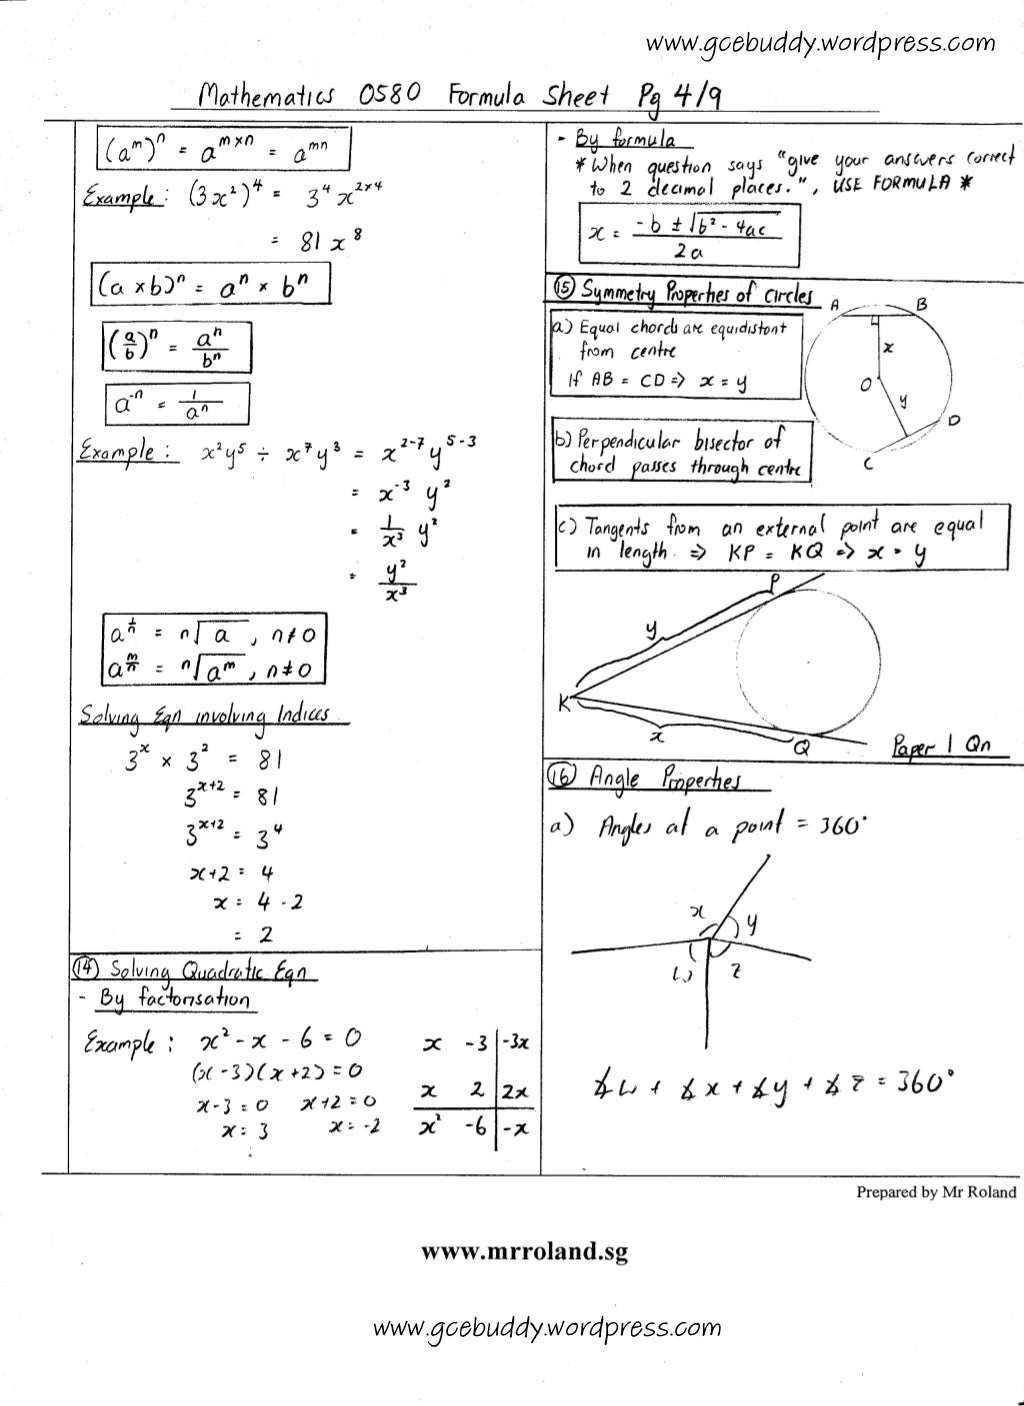 www.gcebuddy.wordpress.com
Mathematics 0580 Formula Sheet Pg 4/9
(aᵐ)ⁿ = aᵐˣⁿ = aᵐⁿ
Example: (3x²)⁴ = 3⁴x²ˣ⁴
= 81x⁸
(a × b)ⁿ = aⁿ × bⁿ
(a/b)ⁿ = aⁿ/bⁿ
a⁻ⁿ = 1/aⁿ
Example: x²y⁵ ÷ x⁷y³ = x^(2-7) y^(5-3)
= x⁻³ y²
= 1/x³ y²
= y²/x³
a^(1/n) = ⁿ√a, n≠0
a^(m/n) = ⁿ√aᵐ, n≠0
Solving Eqn involving Indices
3ˣ × 3² = 81
3ˣ⁺² = 81
3ˣ⁺² = 3⁴
x+2 = 4
x = 4 - 2
= 2
(14) Solving Quadratic Eqn
- By factorisation
Example: x² - x - 6 = 0
(x - 3)(x + 2) = 0
x - 3 = 0 x + 2 = 0
x = 3 x = -2
x -3 -3x
x 2 2x
x² -6 -x
- By formula
* When question says "give your answers correct
to 2 decimal places.", USE FORMULA *
x = (-b ± √(b² - 4ac))/2a
(15) Symmetry Properties of Circles
a) Equal chords are equidistant
from centre
If AB = CD => x = y
A
B
x
O
y
D
C
b) Perpendicular bisector of
chord passes through centre
c) Tangents from an external point are equal
in length. => KP = KQ => x = y
P
y
K
x
Q
Paper 1 Qn
(16) Angle Properties
a) Angles at a point = 360°
x
y
w
z
∡w + ∡x + ∡y + ∡z = 360°
Prepared by Mr Roland
www.mrroland.sg
www.gcebuddy.wordpress.com